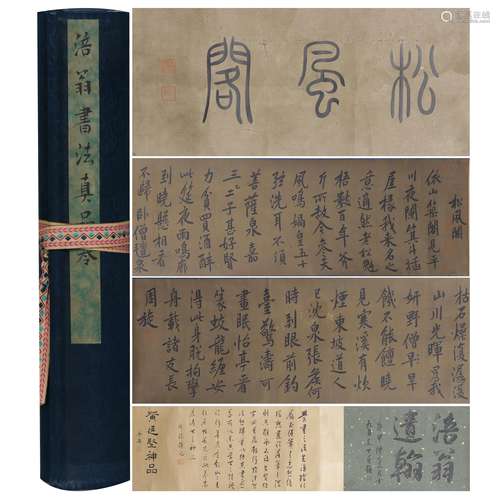 涪翁書法真品卷
松風閣
松風閣
依山築閣見平
川夜闌箕斗插
屋椽我來名之
意適然老松魁
梧數百年斧
斤所赦今參天
風鳴媧皇五十
弦洗耳不須
菩薩泉嘉
三二子甚好賢
力貧買酒醉
此筵夜雨鳴廊
到曉懸相看
不歸臥僧氈泉
枯石燥復潺湲
山川光暉為我
妍野僧早旱
饑不能饘曉
見寒溪有炊
煙東坡道人
已沈泉張侯何
時到眼前釣
臺驚濤可
晝眠怡亭看
篆蛟龍纏安
得此身脫拘攣
舟載諸友長
周旋
黃庭堅神品
涪翁
遺翰